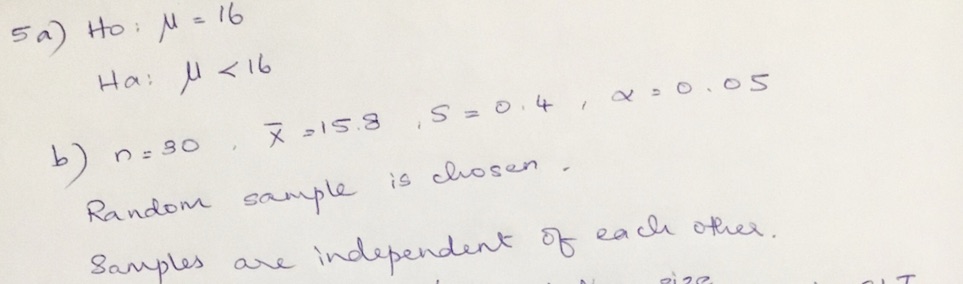 5a) Ho: μ = 16
Ha: μ < 16
b) n = 30, x̄ = 15.8, S = 0.4, α = 0.05
Random sample is chosen.
Samples are independent of each other.
size